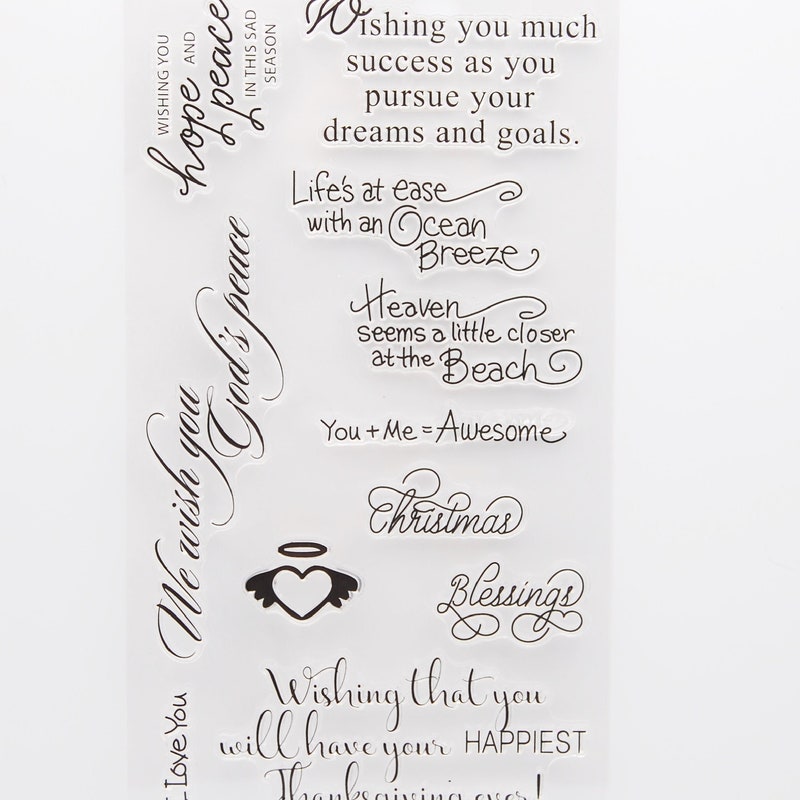 WISHING YOU
hope AND
peace
IN THIS SAD
SEASON
Wishing you much
success as you
pursue your
dreams and goals.
Life's at ease
with an Ocean
Breeze
Heaven
seems a little closer
at the Beach
You + Me = Awesome
Christmas
Blessings
We wish you
God's peace
I Love You
Wishing that you
will have your HAPPIEST
Thanksgiving ever!